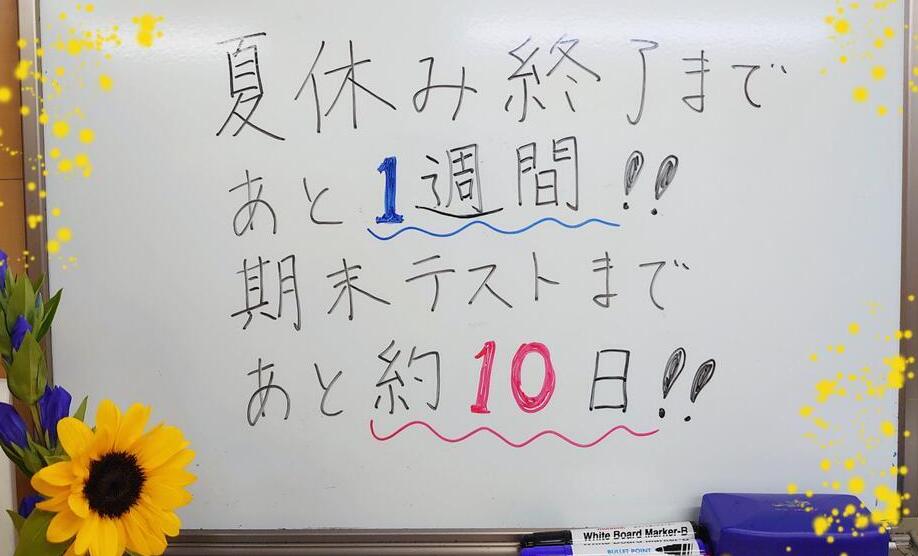 夏休み終了まで
あと1週間!!
期末テストまで
あと約10日!!
White Board Marker-B
BULLET POINT